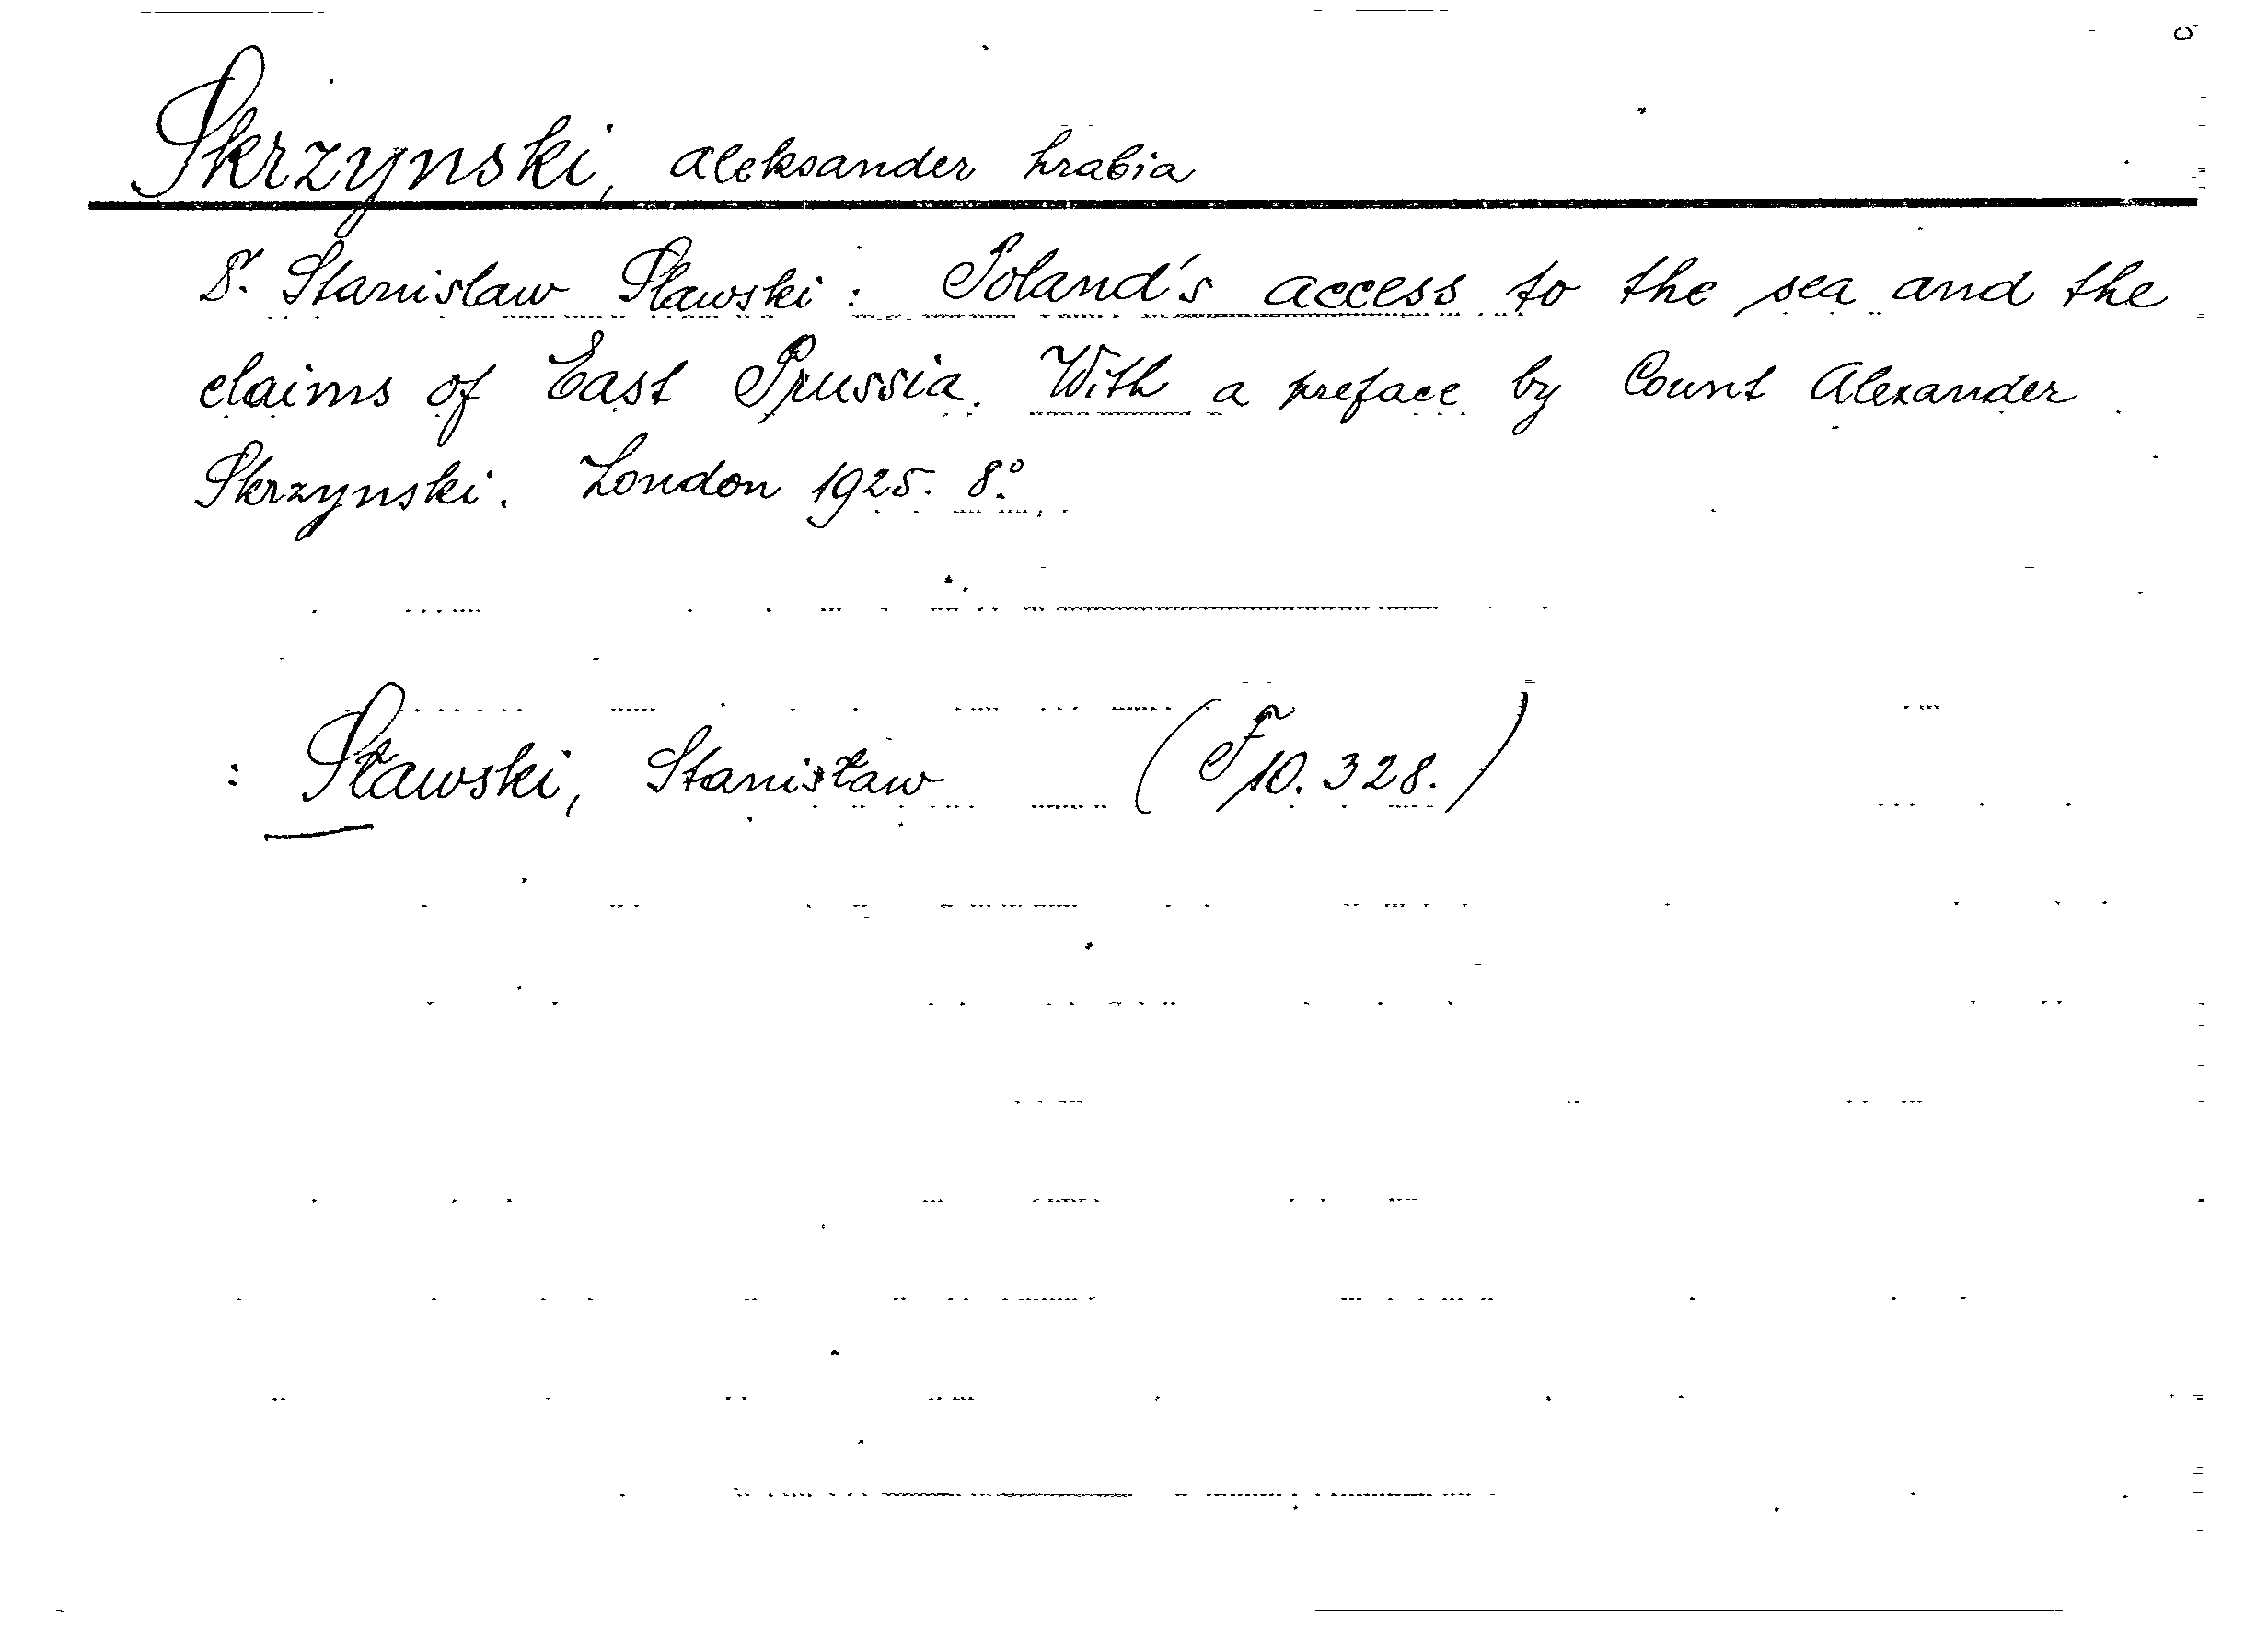 Skrzynski, Aleksander hrabia
Dr. Stanislaw Slawski: Poland's access to the sea and the
claims of East Prussia. With a preface by Count Alexander
Skrzynski. London 1925. 8°.
: Sławski, Stanisław (F 10.328.)